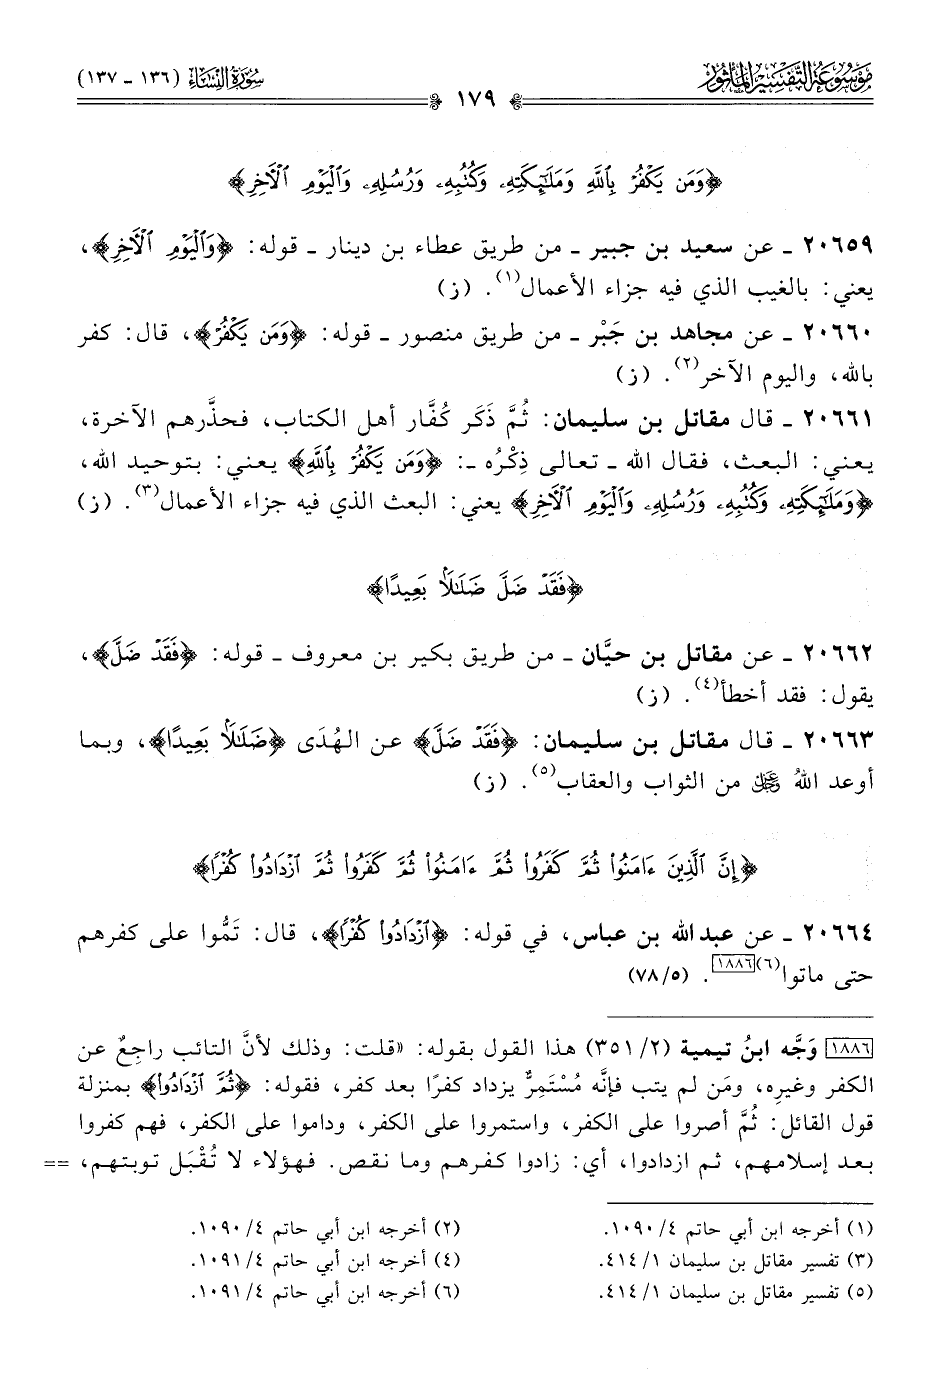 موسوعة التفسير المأثور
سورة النساء (١٣٦ ـ ١٣٧)
١٧٩
﴿وَمَن يَكْفُرْ بِٱللَّهِ وَمَلَٰٓئِكَتِهِۦ وَكُتُبِهِۦ وَرُسُلِهِۦ وَٱلْيَوْمِ ٱلْأَخِرِ﴾
٢٠٦٥٩ ـ عن سعيد بن جبير ـ من طريق عطاء بن دينار ـ قوله: ﴿وَٱلْيَوْمِ ٱلْأَخِرِ﴾،
يعني: بالغيب الذي فيه جزاء الأعمال(١). (ز)
٢٠٦٦٠ ـ عن مجاهد بن جَبْر ـ من طريق منصور ـ قوله: ﴿وَمَن يَكْفُرْ﴾، قال: كفر
بالله، واليوم الآخر(٢). (ز)
٢٠٦٦١ ـ قال مقاتل بن سليمان: ثُمَّ ذَكَر كُفَّار أهل الكتاب، فحذَّرهم الآخرة،
يعني: البعث، فقال الله ـ تعالى ذِكْرُه ـ: ﴿وَمَن يَكْفُرْ بِٱللَّهِ﴾ يعني: بتوحيد الله،
﴿وَمَلَٰٓئِكَتِهِۦ وَكُتُبِهِۦ وَرُسُلِهِۦ وَٱلْيَوْمِ ٱلْأَخِرِ﴾ يعني: البعث الذي فيه جزاء الأعمال(٣). (ز)
﴿فَقَدْ ضَلَّ ضَلَٰلًۢا بَعِيدًا﴾
٢٠٦٦٢ ـ عن مقاتل بن حيَّان ـ من طريق بكير بن معروف ـ قوله: ﴿فَقَدْ ضَلَّ﴾،
يقول: فقد أخطأ(٤). (ز)
٢٠٦٦٣ ـ قال مقاتل بن سليمان: ﴿فَقَدْ ضَلَّ﴾ عن الهُدَى ﴿ضَلَٰلًۢا بَعِيدًا﴾، وبما
أوعد اللهُ ﷿ من الثواب والعقاب(٥). (ز)
﴿إِنَّ ٱلَّذِينَ ءَامَنُوا۟ ثُمَّ كَفَرُوا۟ ثُمَّ ءَامَنُوا۟ ثُمَّ كَفَرُوا۟ ثُمَّ ٱزْدَادُوا۟ كُفْرًا﴾
٢٠٦٦٤ ـ عن عبد الله بن عباس، في قوله: ﴿ٱزْدَادُوا۟ كُفْرًا﴾، قال: تَمُّوا على كفرهم
حتى ماتوا(٦)[١٨٨٦]. (٧٨/٥)
[١٨٨٦] وَجَّه ابنُ تيمية (٣٥١/٢) هذا القول بقوله: «قلت: وذلك لأنَّ التائب راجِعٌ عن
الكفر وغيرِه، ومَن لم يتب فإنَّه مُسْتَمِرٌّ يزداد كفرًا بعد كفر، فقوله: ﴿ثُمَّ ٱزْدَادُوا۟﴾ بمنزلة
قول القائل: ثُمَّ أصروا على الكفر، واستمروا على الكفر، وداموا على الكفر، فهم كفروا
بعد إسلامهم، ثم ازدادوا، أي: زادوا كفرهم وما نقص. فهؤلاء لا تُقْبَل توبتهم، ==
(١) أخرجه ابن أبي حاتم ٤/ ١٠٩٠.
(٢) أخرجه ابن أبي حاتم ٤/ ١٠٩٠.
(٣) تفسير مقاتل بن سليمان ١/ ٤١٤.
(٤) أخرجه ابن أبي حاتم ٤/ ١٠٩١.
(٥) تفسير مقاتل بن سليمان ١/ ٤١٤.
(٦) أخرجه ابن أبي حاتم ٤/ ١٠٩١.